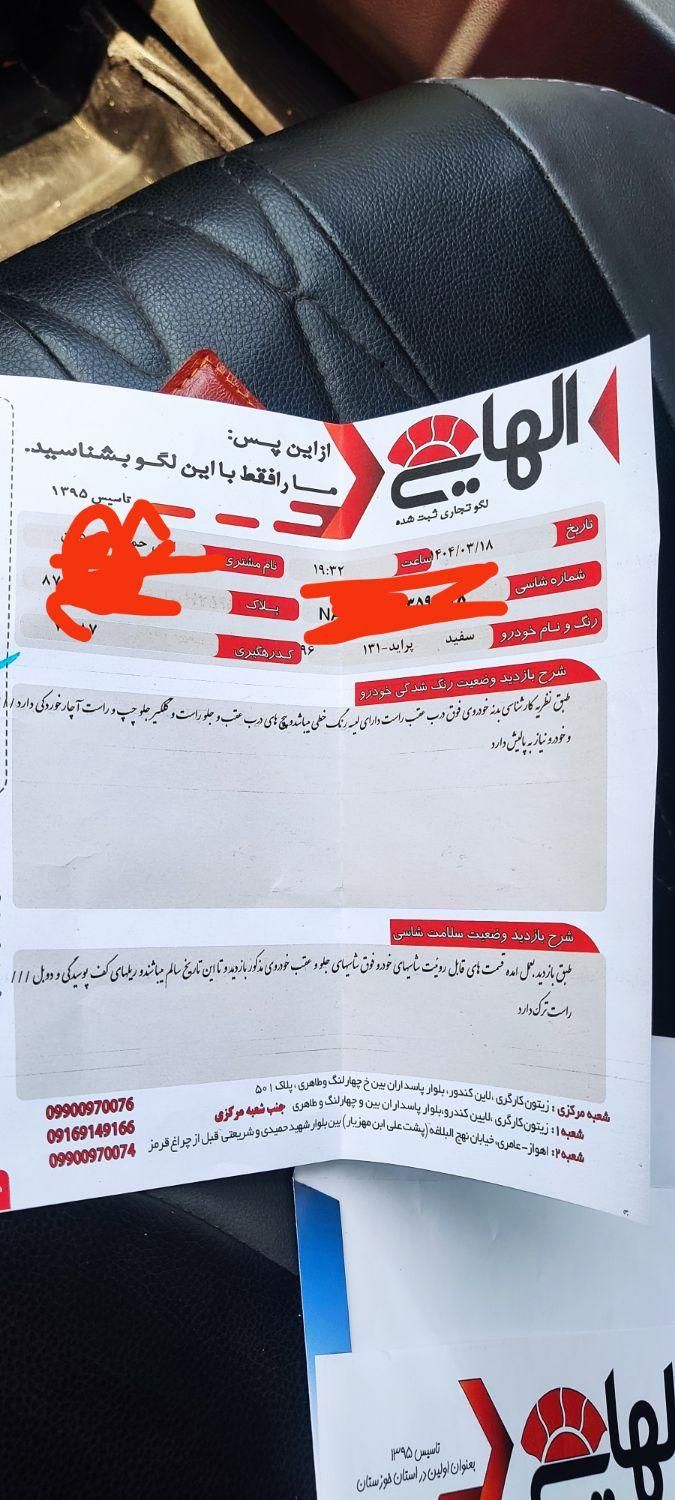 الهایی
لگو تجاری ثبت شده
از این پس:
ما را فقط با این لگو بشناسید.
تاسیس ۱۳۹۵
تاریخ ۱۴۰۴/۰۳/۱۸ ساعت ۱۹:۳۲ نام مشتری
شماره شاسی پلاک ۸۷
رنگ و نام خودرو سفید پراید-۱۳۱ ۹۶ کد رهگیری
شرح بازدید وضعیت رنگ شدگی خودرو
طبق نظریه کارشناسی بدنه خودروی فوق درب عقب راست دارای لیسه رنگ خطی میباشد و پیچ های درب عقب و جلو راست و گلگیر جلو چپ و راست آچار خوردگی دارد //
و خودرو نیاز به پالیش دارد
شرح بازدید وضعیت سلامت شاسی
طبق بازدید بعمل امده قسمت های قابل روئیت شاسیهای خودرو فوق شاسیهای جلو و عقب خودروی مذکور بازدید و تا این تاریخ سالم میباشند و ریلهای کف پوسیدگی و دوبل ///
راست ترک دارد
شعبه مرکزی : زیتون کارگری ، لاین کندور، بلوار پاسداران بین خ چهارلنگ وطاهری ، پلاک ۵۰۱
شعبه۱: زیتون کارگری ،لایین کندرو،بلوار پاسداران بین و چهارلنگ و طاهری جنب شعبه مرکزی
شعبه۲: اهواز-عامری، خیابان نهج البلاغه (پشت علی ابن مهزیار) بین بلوار شهید حمیدی و شریعتی قبل از چراغ قرمز
09900970076
09169149166
09900970074
الهایی
تاسیس ۱۳۹۵
بعنوان اولین در استان خوزستان